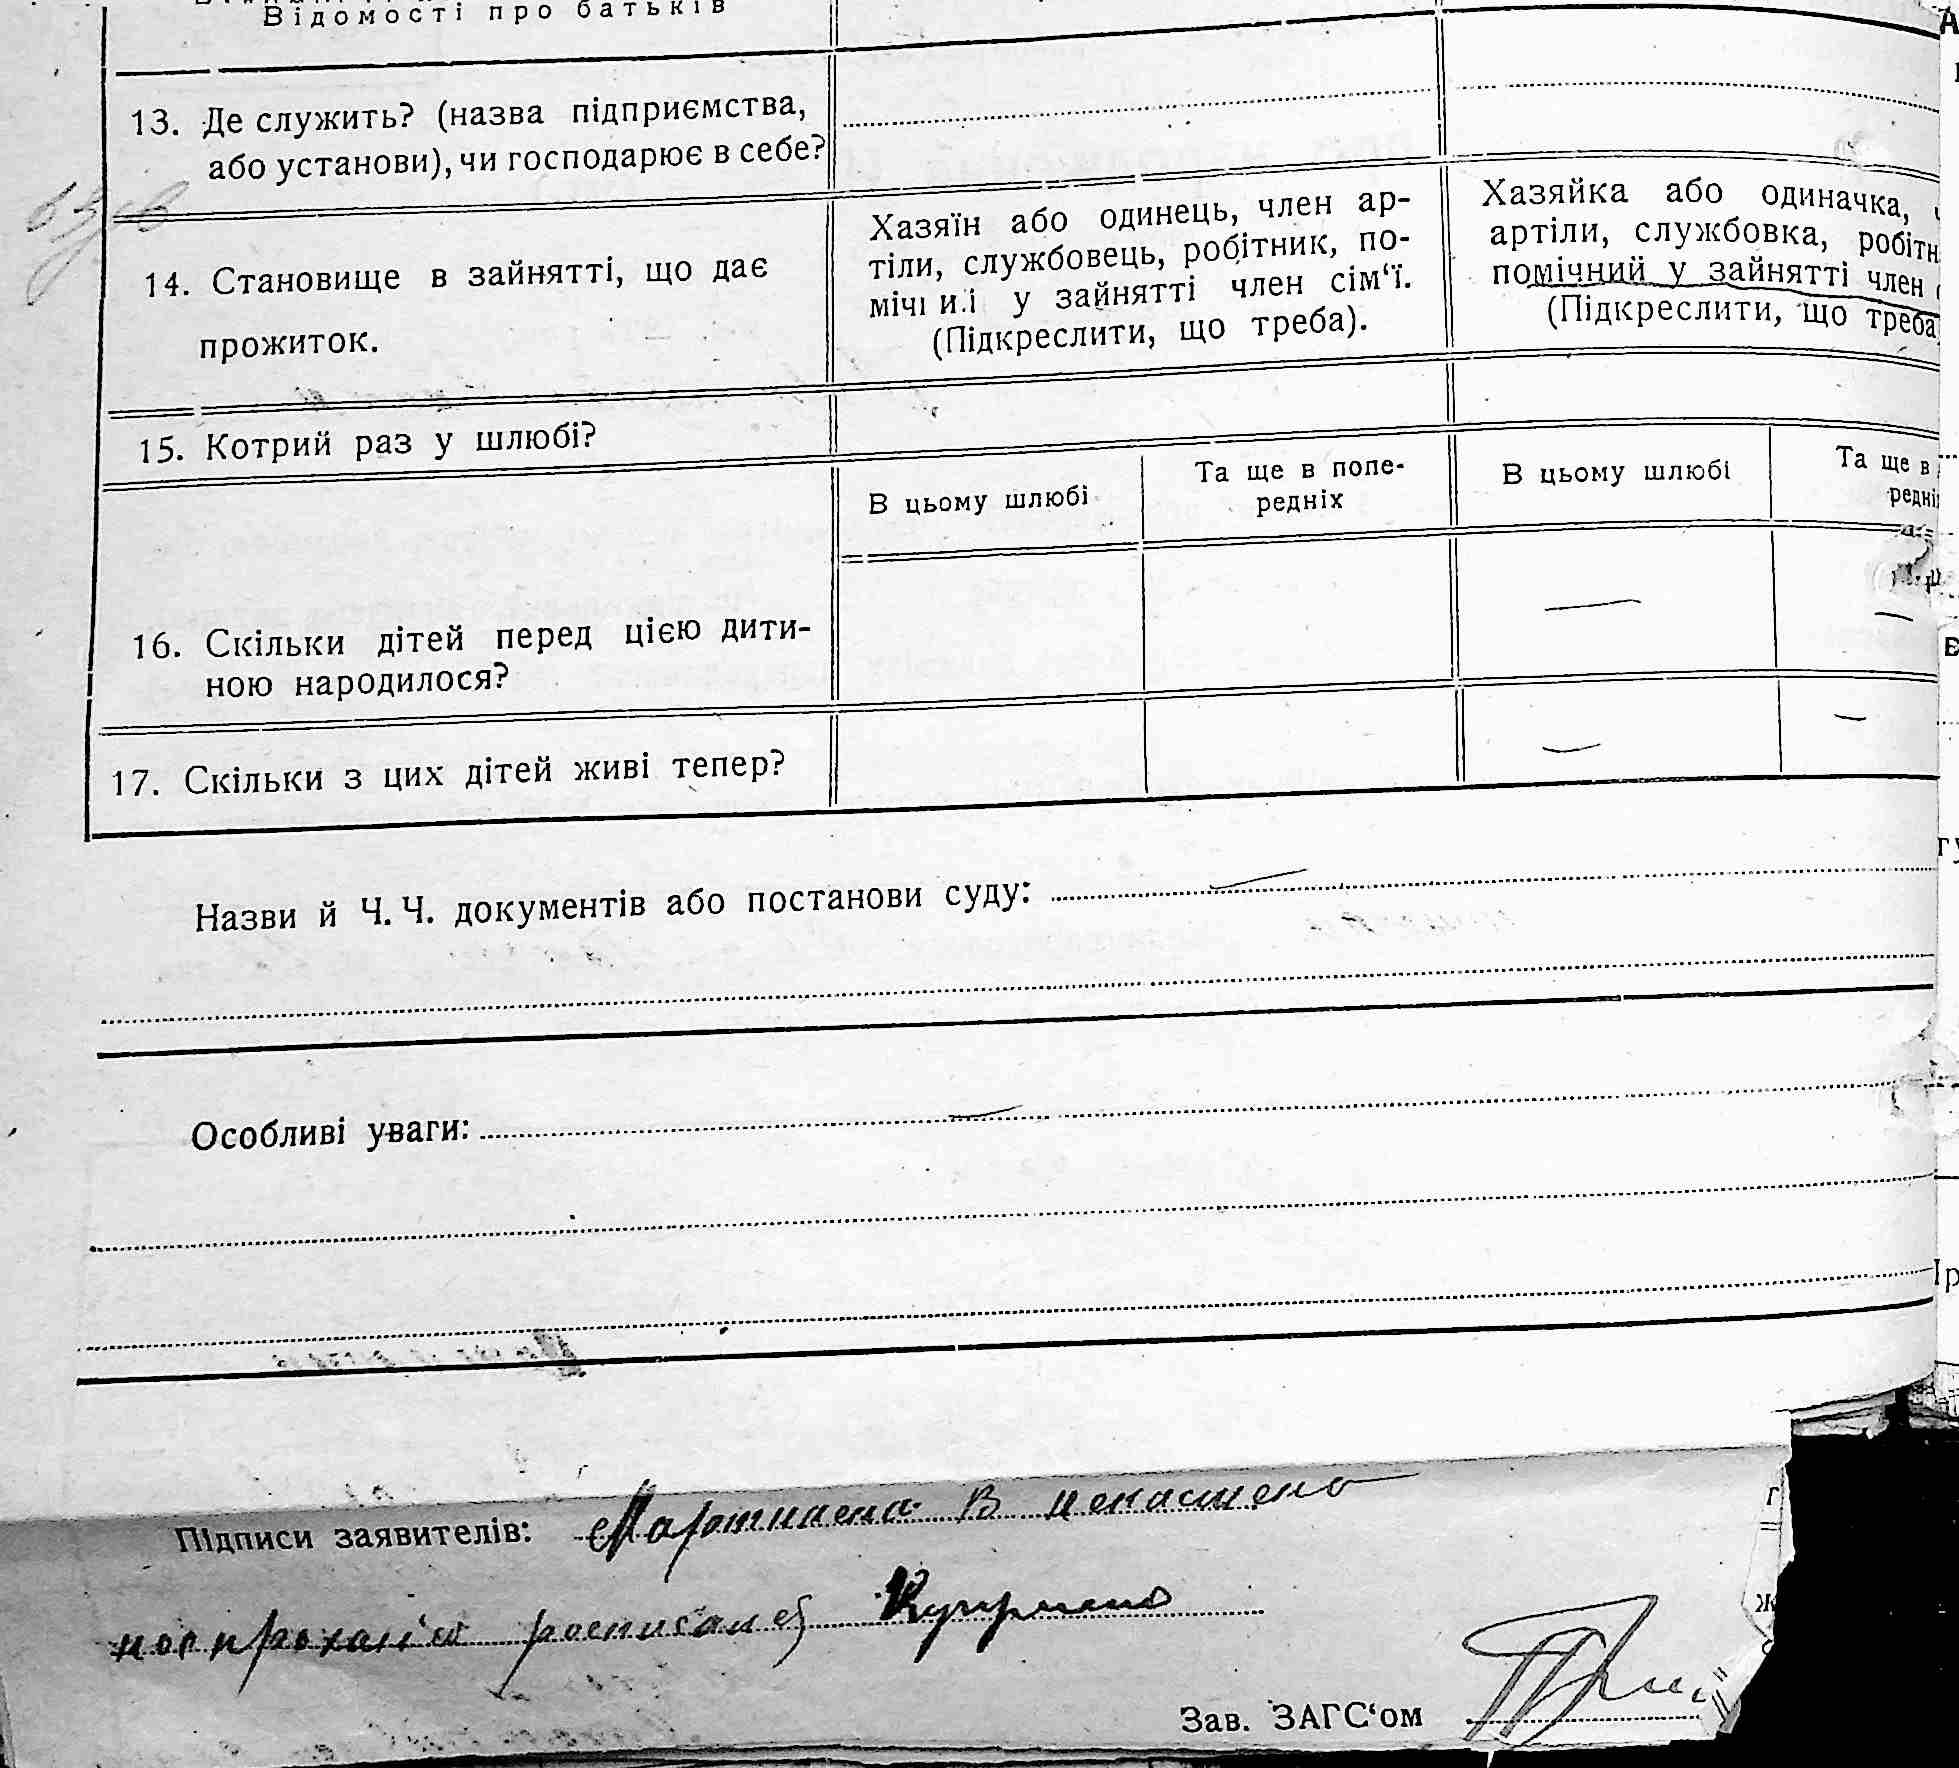 Відомості про батьків
13. Де служить? (назва підприємства,
або установи), чи господарює в себе?
14. Становище в зайнятті, що дає
прожиток.
Хазяїн або одинець, член ар-
тіли, службовець, робітник, по-
мічний у зайнятті член сім‘ї.
(Підкреслити, що треба).
Хазяйка або одиначка,
артіли, службовка, робітн
помічний у зайнятті член
(Підкреслити, що треба
15. Котрий раз у шлюбі?
В цьому шлюбі
Та ще в попе-
редніх
В цьому шлюбі
Та ще в
редні
16. Скільки дітей перед цією дити-
ною народилося?
17. Скільки з цих дітей живі тепер?
Назви й Ч. Ч. документів або постанови суду:
Особливі уваги:
Підписи заявителів:
Зав. ЗАГС‘ом